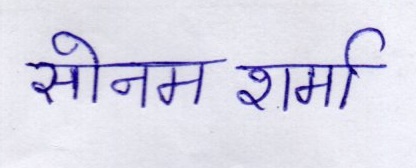 सोनम शर्मा